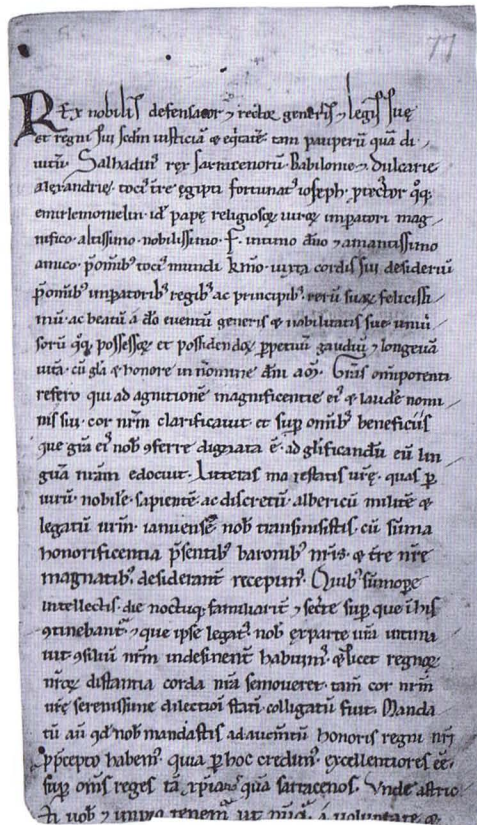 77
Rex nobilis defensator ⁊ rector generis ⁊ legis suę
et regni sui sedm̄ iusticiā & eq̇tatē tam pauperū quā di-
uitū. Salhadin' rex sarracenorū. Babilonie. ⁊ dulcarie
alexandrie. toci' t̄re egipti fortunat' ioseph. p̄tector q̊q;
emirlemomelin id' papę religiosoꝝ uiroꝝ impatori mag-
nifico. altissimo. nobilissimo. F. intimo dn̄o ⁊ amantissimo
amico. p̄omīb' toci' mundi km̄o. iuxta cordis sui desideriū
p̄omīb' impatorib' regib' ac principib'. rerū suaꝝ felicissi-
mū. ac beatū a dō euentū generis & nobilitatis sue. uniū
soꝝū q̊q; possessoꝝ et possidendoꝝ ꝑpetuū gaudiū ⁊ longeuā
uitā. cū glā & honore in nōmine dn̄i am̄. Grās omīpotenti
refero qui ad agnitionē magnificentie ei' & laudē nomi
nis sui. cor nr̄m clarificauit. et suꝑ omīb' beneficiis
que grā ei' nob' ꝯferre dignata ē. ad glīficandū eū lin
guā nr̄am edocuit. Litteras maiestatis ur̄ę. quas ꝑ
uirū nobilē. sapientē. ac discretū. albericū militē &
legatū ur̄m. ianuensē nob' transmisistis. cū sūma
honorificentia p̄sentib' baronib' nr̄is. & t̄re nr̄e
magnatib'. desiderant̄ recepim'. Quib' sūmoꝑe
intellectis. die noctuq; familiarit̄ ⁊ secr̄e suꝑ que ī his
ꝯtinebant̄ ⁊ que ipse legat' nob' ex parte ur̄a intima
uit ꝯsiliū nr̄m indesinent̄ habuim'. & licet regnoꝝ
nr̄oꝝ distantia corda nr̄a semoueret. tam̄ cor nr̄m
ur̄ę serenissime dilectioī statī colligatū fuit. Manda
tū aū qd nob' mandastis ad augmtū honoris regni nr̄i
p̄ p̄cepto habem'. quia ꝑ hoc credim'. excellentiores eē.
suꝑ oms̄ reges tā xp̄ianos quā sarracenos. Vnde astric
ti uob' ⁊ imꝑio tenem̄ ut nūq̄ a uoluntate &